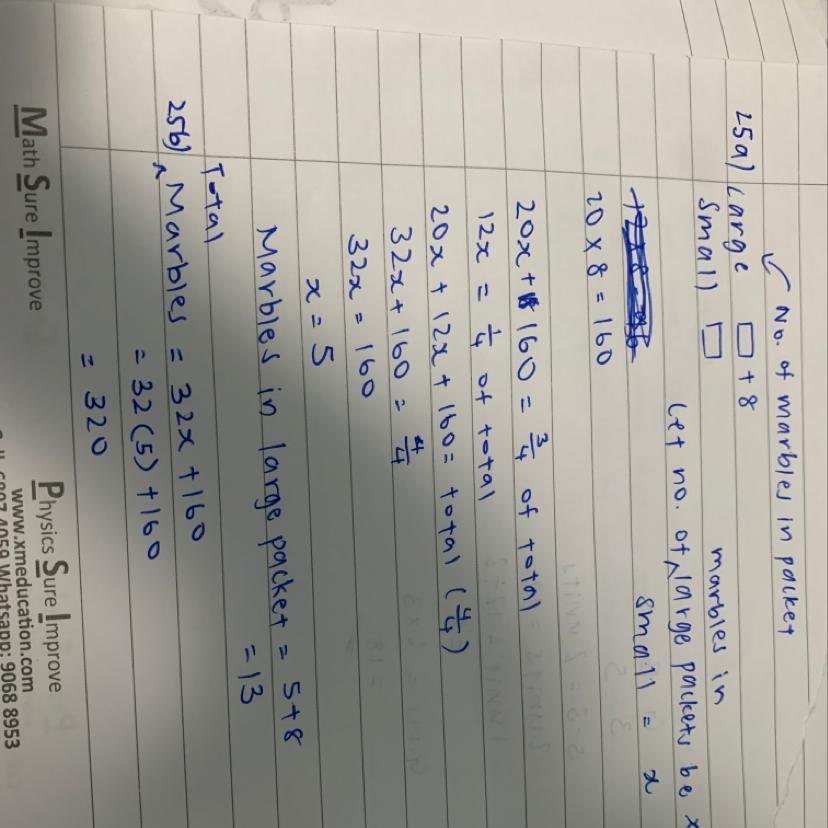 No. of marbles in packet
25a) Large □ + 8
Small □
marbles in
Let no. of large packets be x
small = x
20 x 8 = 160
20x + 160 = 3/4 of total
12x = 1/4 of total
20x + 12x + 160 = total (4/4)
32x + 160 = 4/4
32x = 160
x = 5
Marbles in large packet = 5+8
= 13
Total
25b) Marbles = 32x + 160
= 32(5) + 160
= 320
Math Sure Improve
Physics Sure Improve
www.xmeducation.com
4059 Whatsapp: 9068 8953